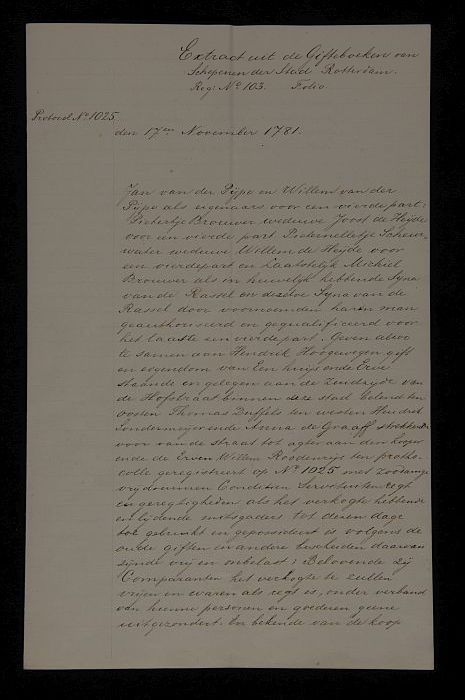 Extract uit de Gifteboeken van
Schepenen der Stad Rotterdam.
Reg: No 103. Folio
Protocol No 1025.
den 17en November 1781.
Jan van der Pijpe en Willem van der
Pijpe als eigenaars voor een vierde part:
Pietertje Brouwer weduwe Joost de Heijde
voor een vierde part Pieternelletje Scheur-
water weduwe Willem de Heijde voor
een vierdepart en Laatstelijk Michiel
Brouwer als in huwelijk hebbende Syna
van de Rassel en dezelve Syna van de
Rassel door voornoemden haren man
geauthoriseerd en gequalificeerd voor
het laatste een vierde part. Geven alzoo
te samen aan Hendrik Hoogewegen gift
en eigendom van Een huijs ende Erve
staande en gelegen aan de Zuidzijde van
de Hofstraat binnen deze stad belend ten
oosten Thomas Duffels ten westen Hendrik
Sondermeijer ende Anna de Graaff strekkende
voor van de straat tot agter aan den
ende de Erven Willem Roodenrijs ten proto-
colle geregistreert op No 1025 met zoodanige
vrijdommen Conditien Servituiten regt
en geregtigheden als het verkogte hebbende
en lijdende mitsgaders tot dezen dage
toe gebruikt en gepossideert is volgens de
oude giften en andere bescheiden daarvan
zijnde vrij en onbelast: Belovende zij
Comparanten het verkogte te zullen
vrijen en waren als regt is, onder verband
van hunne personen en goederen geene
uitgezondert. En bekende van de koop